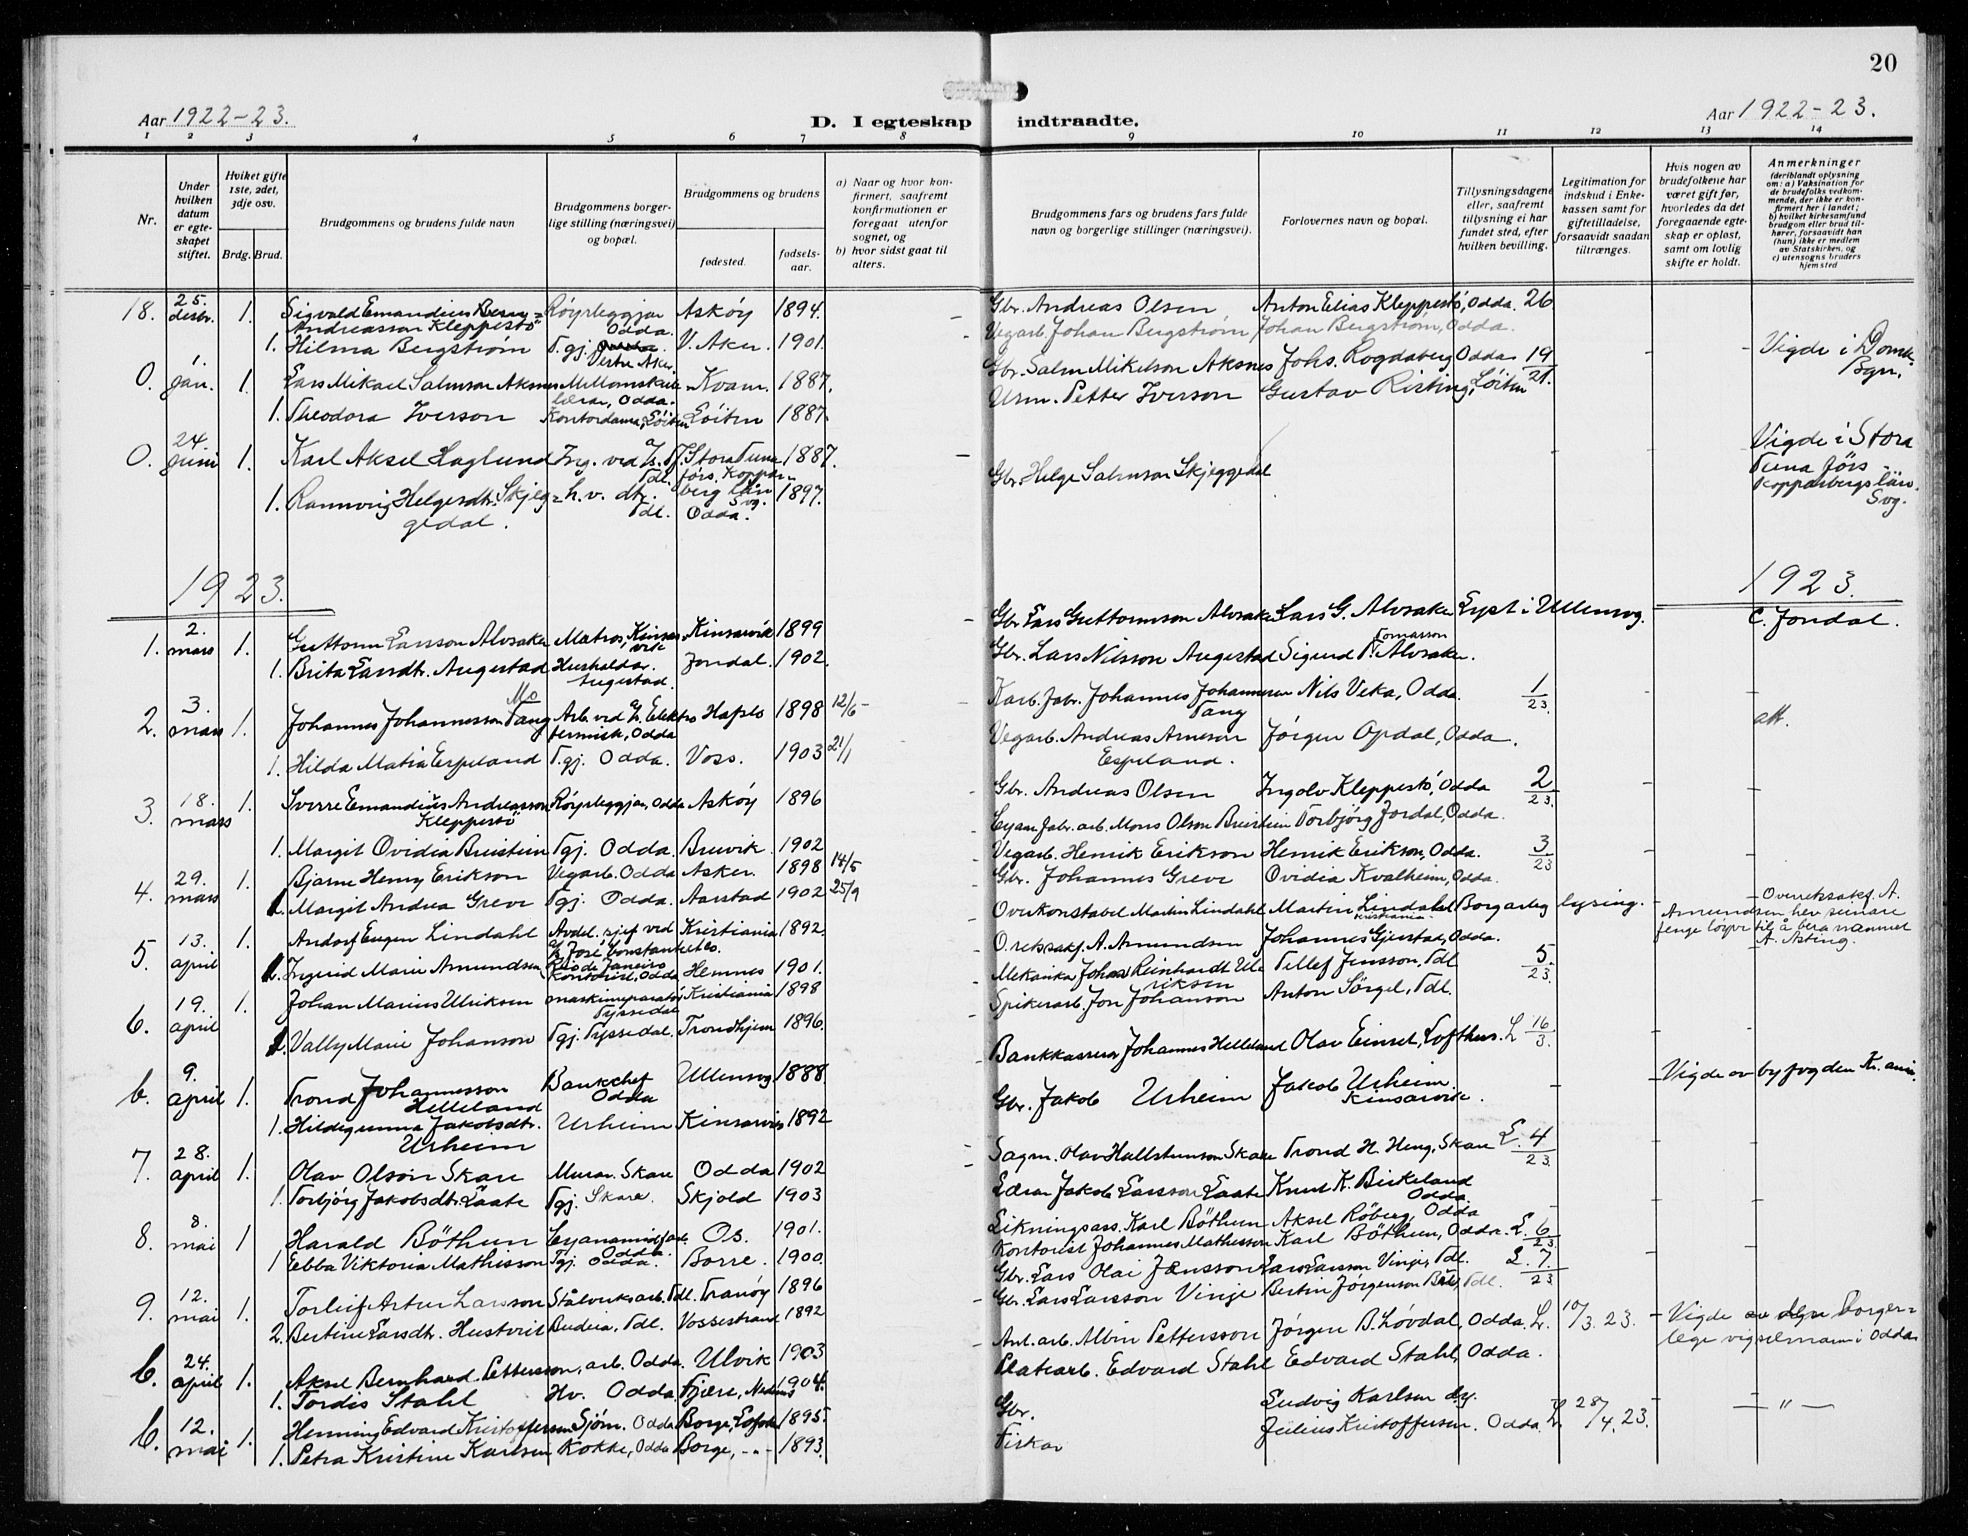 20
Aar 1922-23.
D. I egteskap indtraadte.
Aar 1922-23.
1 2 3 4 5 6 7 8 9 10 11 12 13 14
Nr.
Under hvilken datum er egteskapet stiftet.
Hviket gifte 1ste, 2det, 3dje osv.
Brdg. Brud.
Brudgommens og brudens fulde navn
Brudgommens borgerlige stilling (næringsvei) og bopæl.
Brudgommens og brudens
fødested.
fødselsaar.
a) Naar og hvor konfirmert, saafremt konfirmationen er foregaat utenfor sognet, og
b) hvor sidst gaat til alters.
Brudgommens fars og brudens fars fulde navn og borgerlige stillinger (næringsvei).
Forlovernes navn og bopæl.
Tillysningsdagene eller, saafremt tillysning ei har fundet sted, efter hvilken bevilling.
Legitimation for indskud i Enkekassen samt for giftetilladelse, forsaavidt saadan tiltrænges.
Hvis nogen av brudefolkene har været gift før, hvorledes da det foregaaende egteskap er opløst, samt om lovlig skifte er holdt.
Anmerkninger (deriblandt oplysning om: a) Vaksination for de brudefolks vedkommende, der ikke er konfirmert her i landet; b) hvilket kirkesamfund brudgom eller brud tilhører, forsaavidt han (hun) ikke er medlem av Statskirken, og c) utensogns bruders hjemsted
18. 25. desbr. 1. Sigvald Emandius Andreasson Kleppestö Röyrleggjar Odda. Asköy 1894. Gbr. Andreas Olsen Anton Elias Kleppestö, Odda. 26
1. Hilma Bergström T.gj. Vestre Aker. V. Aker. 1901. Vegarb. Johan Bergström Johan Bergström, Odda.
0. 1. jan. 1. Lars Mikael Salmson Aksnes Millomskulelærar, Odda. Kvam. 1887. Gbr. Salm Mikelson Aksnes Johs. Rogdaberg Odda 19/21. Vigde i Domk. Bgn.
1. Theodora Iverson Kontordama, Löiten Löiten 1887. Urm. Petter Iverson Gustav Risting, Löiten
0. 24. juni 1. Karl Aksel Haglund Ing. ved Tdl. Stora Tuna förs. Kopparberg län Svg. 1887. Vigde i Stora Tuna förs Kopparbergs län. Svg.
1. Rannveig Helgesdtr. Skjeggedal. h. v. dtr. Tdl. Odda. 1897. Gbr. Helge Salmson Skjeggedal
1923. 1923.
1. 2. mars 1. Guttorm Larsson Alvsaker Matros, Kinsarvik Kinsarvik 1899 Gbr. Lars Guttormson Alvsaker Lars G. Alvsaker Lyst i Ullensvg. C. Jondal.
1. Brita Larsdtr. Augestad Hushaldar. Augestad. Jondal. 1902. Gbr. Lars Nilsson Augestad Sigurd Tomasson Alvsaker.
2. 3. mars 1. Johannes Johannesson Mo Tang Arb. ved Elektrokermisk, Odda Hafslo 1898 12/6 Karb. fabr. Johannes Johannesen Tang Nils Veka, Odda. 1/23. att.
1. Hilda Matia Espeland T.gj. Odda. Voss. 1903 21/1 Vegarb. Andreas Arneson Espeland. Jörgen Opdal, Odda.
3. 18. mars 1. Sverre Emandius Andreasson Kleppestö Röyrleggjar, Odda Asköy 1896 Gbr. Andreas Olsen Ingolv Kleppestö, Odda 2/23.
1. Margit Ovidia Breistein Tgj. Odda. Bruvik. 1902 Cyan. fabr. arb. Mons Olson Breistein Torbjörg Jordal, Odda.
4. 29. mars 1. Bjarne Henry Erikson Vegarb. Odda Asker. 1898 14/5 Vegarb. Henrik Erikson Henrik Erikson, Odda. 3/23
1. Margit Andrea Greve Tgj. Odda. Aarstad 1902 25/9 Gbr. Johannes Greve Ovidia Kvalheim, Odda.
5. 13. april 1. Andorf Eugen Lindahl Avdel. sjef ved José Constante &Co. Rio de Janeiro Kristiania 1892. Overkonstabel Martin Lindahl Martin Lindahl Kristiania. Borgarleg lysing. Overretssakf. A. Amundsen hev seinare fenge löyve til å bera namnet A. Asting.
1. Ingrid Marie Amundsen Kontorist, Odda Hemnes 1901. O. retssakf. A. Amundsen Johannes Gjerstad, Odda.
6. 19. april 1. Johan Marius Ulriksen maskinreparatör Tyssedal Kristiania 1898 Mekaniker Johan Reinhardt Ulriksen Tellef Jensson, Tdl 5/23.
1. Vally Marie Johanson Tgj. Tyssedal. Trondhjem 1896. Spikerarb. Jon Johanson Anton Sörgel, Tdl.
b. 9. april 1. Trond Johannesson Helleland Bankchef Odda Ullensvg 1888. Bankkasserer Johannes Helleland Olav Einset, Lofthus. L 16/3. Vigde av byfogden Kr. ania.
1. Hildigunna Jakobsdtr. Urheim Urheim Kinsarvik 1892 Gbr. Jakob Urheim Jakob Urheim. Kinsarvik.
7. 28. april 1. Olav Olson Skare Murar. Skare Odda 1902 Sagm. Olav Hallstenson Skare Trond H. Heng, Skare L. 4/23.
1. Torbjörg Jakobsdtr. Laate Tgj. Skare. Skjold 1903 Lærar Jakob Larsson Laate Knut K. Birkeland Odda
8. 8. mai 1 Harald Böthun Cyanamidfabr. Odda. Os. 1901. Likningsass. Karl Böthun Aksel Röberg, Odda L. 6/23.
1 Ebba Viktoria Mathisson Tgj. Odda. Borre. 1900. Kontorist Johannes Mathisson Karl Böthun, Odda.
9. 12. mai 1. Torleif Artur Larsson Stålverksarb. Tdl. Tranöy 1896 Gbr. Lars Olai Jensson Lars Larsson Vinje, Tdl. L. 7/23
2. Bertine Larsdtr. Hustveit Budeia, Tdl. Vossestrand 1892 Gbr. Lars Larsson Vinje Bertin Jörgenson Böe, Tdl.
b. 24. april 1. Aksel Bernhard Pettersson, arb. Odda. Ulvik 1903 Anl. arb. Albin Pettersson Jörgen B. Lövdal, Odda. L. 10/3. 23. Vigde av den borgerlege vigselmann i Odda
1. Tordis Stahl Hv. Odda. Fjære, Nedenes 1904. Platearb. Edvard Stahl Edvard Stahl, Odda.
b. 12. mai 1. Henning Edvard Kristoffersen Sjöm. Odda Borge, Lofoten 1895. Gbr. Ludvig Karlsen L. 28/4. 23. — " —
1. Petra Kristine Karlsen Kokke, Odda Borge, -"- 1893. Fiskar Julius Kristoffersen. Odda